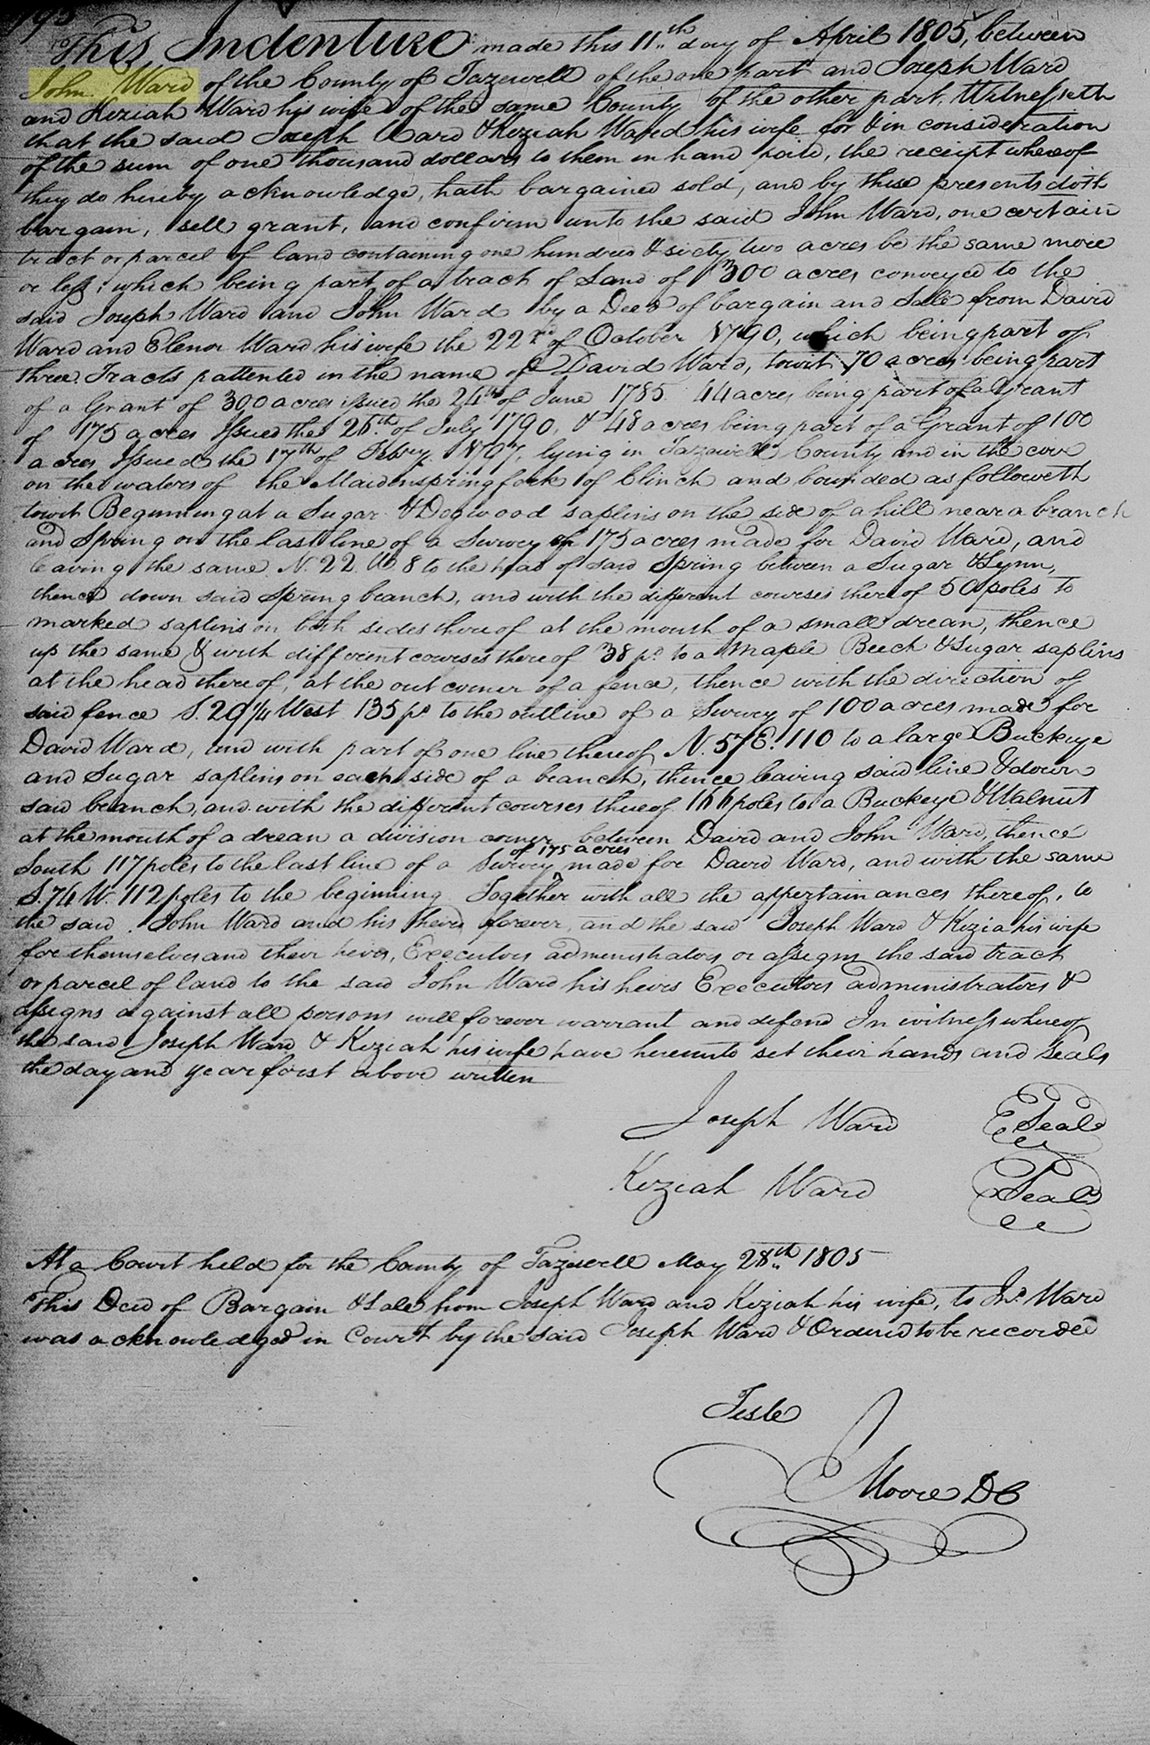 This Indenture made this 11th day of April 1805, between
John Ward of the County of Tazewell of the one part and Joseph Ward
and Keziah Ward his wife of the same County of the other part, Witnesseth
that the said Joseph Ward & Keziah Ward his wife for & in consideration
of the sum of one thousand dollars to them in hand paid, the receipt whereof
they do hereby acknowledge, hath bargained sold, and by these presents doth
bargain, sell grant, and confirm unto the said John Ward, one certain
tract or parcel of land containing one hundred & sixty two acres be the same more
or less; which being part of a trach of Land of 300 acres conveyed to the
said Joseph Ward and John Ward by a Deed of bargain and Sale from David
Ward and Elenor Ward his wife the 22d of October 1790, which being part of
three Tracts pattented in the name of David Ward, towit 70 acres being part
of a Grant of 300 acres issued the 24th of June 1785. 44 acres being part of a Grant
of 175 acres Issued the 26th of July 1790, & 48 acres being part of a Grant of 100
acres Issued the 17th of Febry. 1797, lying in Tazewell County and in the cove
on the waters of the Maidenspring fork of Clinch and bounded as followeth
towit Beginning at a Sugar & Dogwood saplins on the side of a hill near a branch
and Spring on the last line of a Survey of 175 acres made for David Ward, and
leaving the same N. 22 W 8 to the head of said Spring between a Sugar & Lynn,
thence down said Spring branch, and with the different courses thereof 50 poles to
marked saplins on both sides thereof at the mouth of a small drean, thence
up the same & with different courses thereof 38 po to a Maple Beech & Sugar saplins
at the head thereof, at the out corner of a fence, thence with the direction of
said fence S. 29 1/4 West 135 po to the outline of a Survey of 100 acres made for
David Ward, and with part of one line thereof N. 57 E. 110 to a large Buckeye
and Sugar saplins on each side of a branch, thence leaving said line & down
said branch, and with the different courses thereof 166 poles to a Buckeye & Walnut
at the mouth of a drean a division corner between David and John Ward, thence
of 175 acres
South 117 poles to the last line of a Survey made for David Ward, and with the same
S. 74 W. 112 poles to the beginning Together with all the appertainances thereof, to
the said John Ward and his heirs forever, and the said Joseph Ward & Kezia his wife
for themselves and their heirs, Executors administrators or assigns the said tract
or parcel of land to the said John Ward his heirs Executors administrators &
assigns against all persons will forever warrant and defend In witness whereof
the said Joseph Ward & Keziah his wife have hereunto set their hands and seals
the day and year forst above written
Joseph Ward Seal
Keziah Ward Seal
At a Court held for the County of Tazewell May 28th 1805
This Deed of Bargain & Sale from Joseph Ward and Keziah his wife, to Jno Ward
was acknowledged in Court by the said Joseph Ward & Ordered to be recorded
Teste
Moore DC